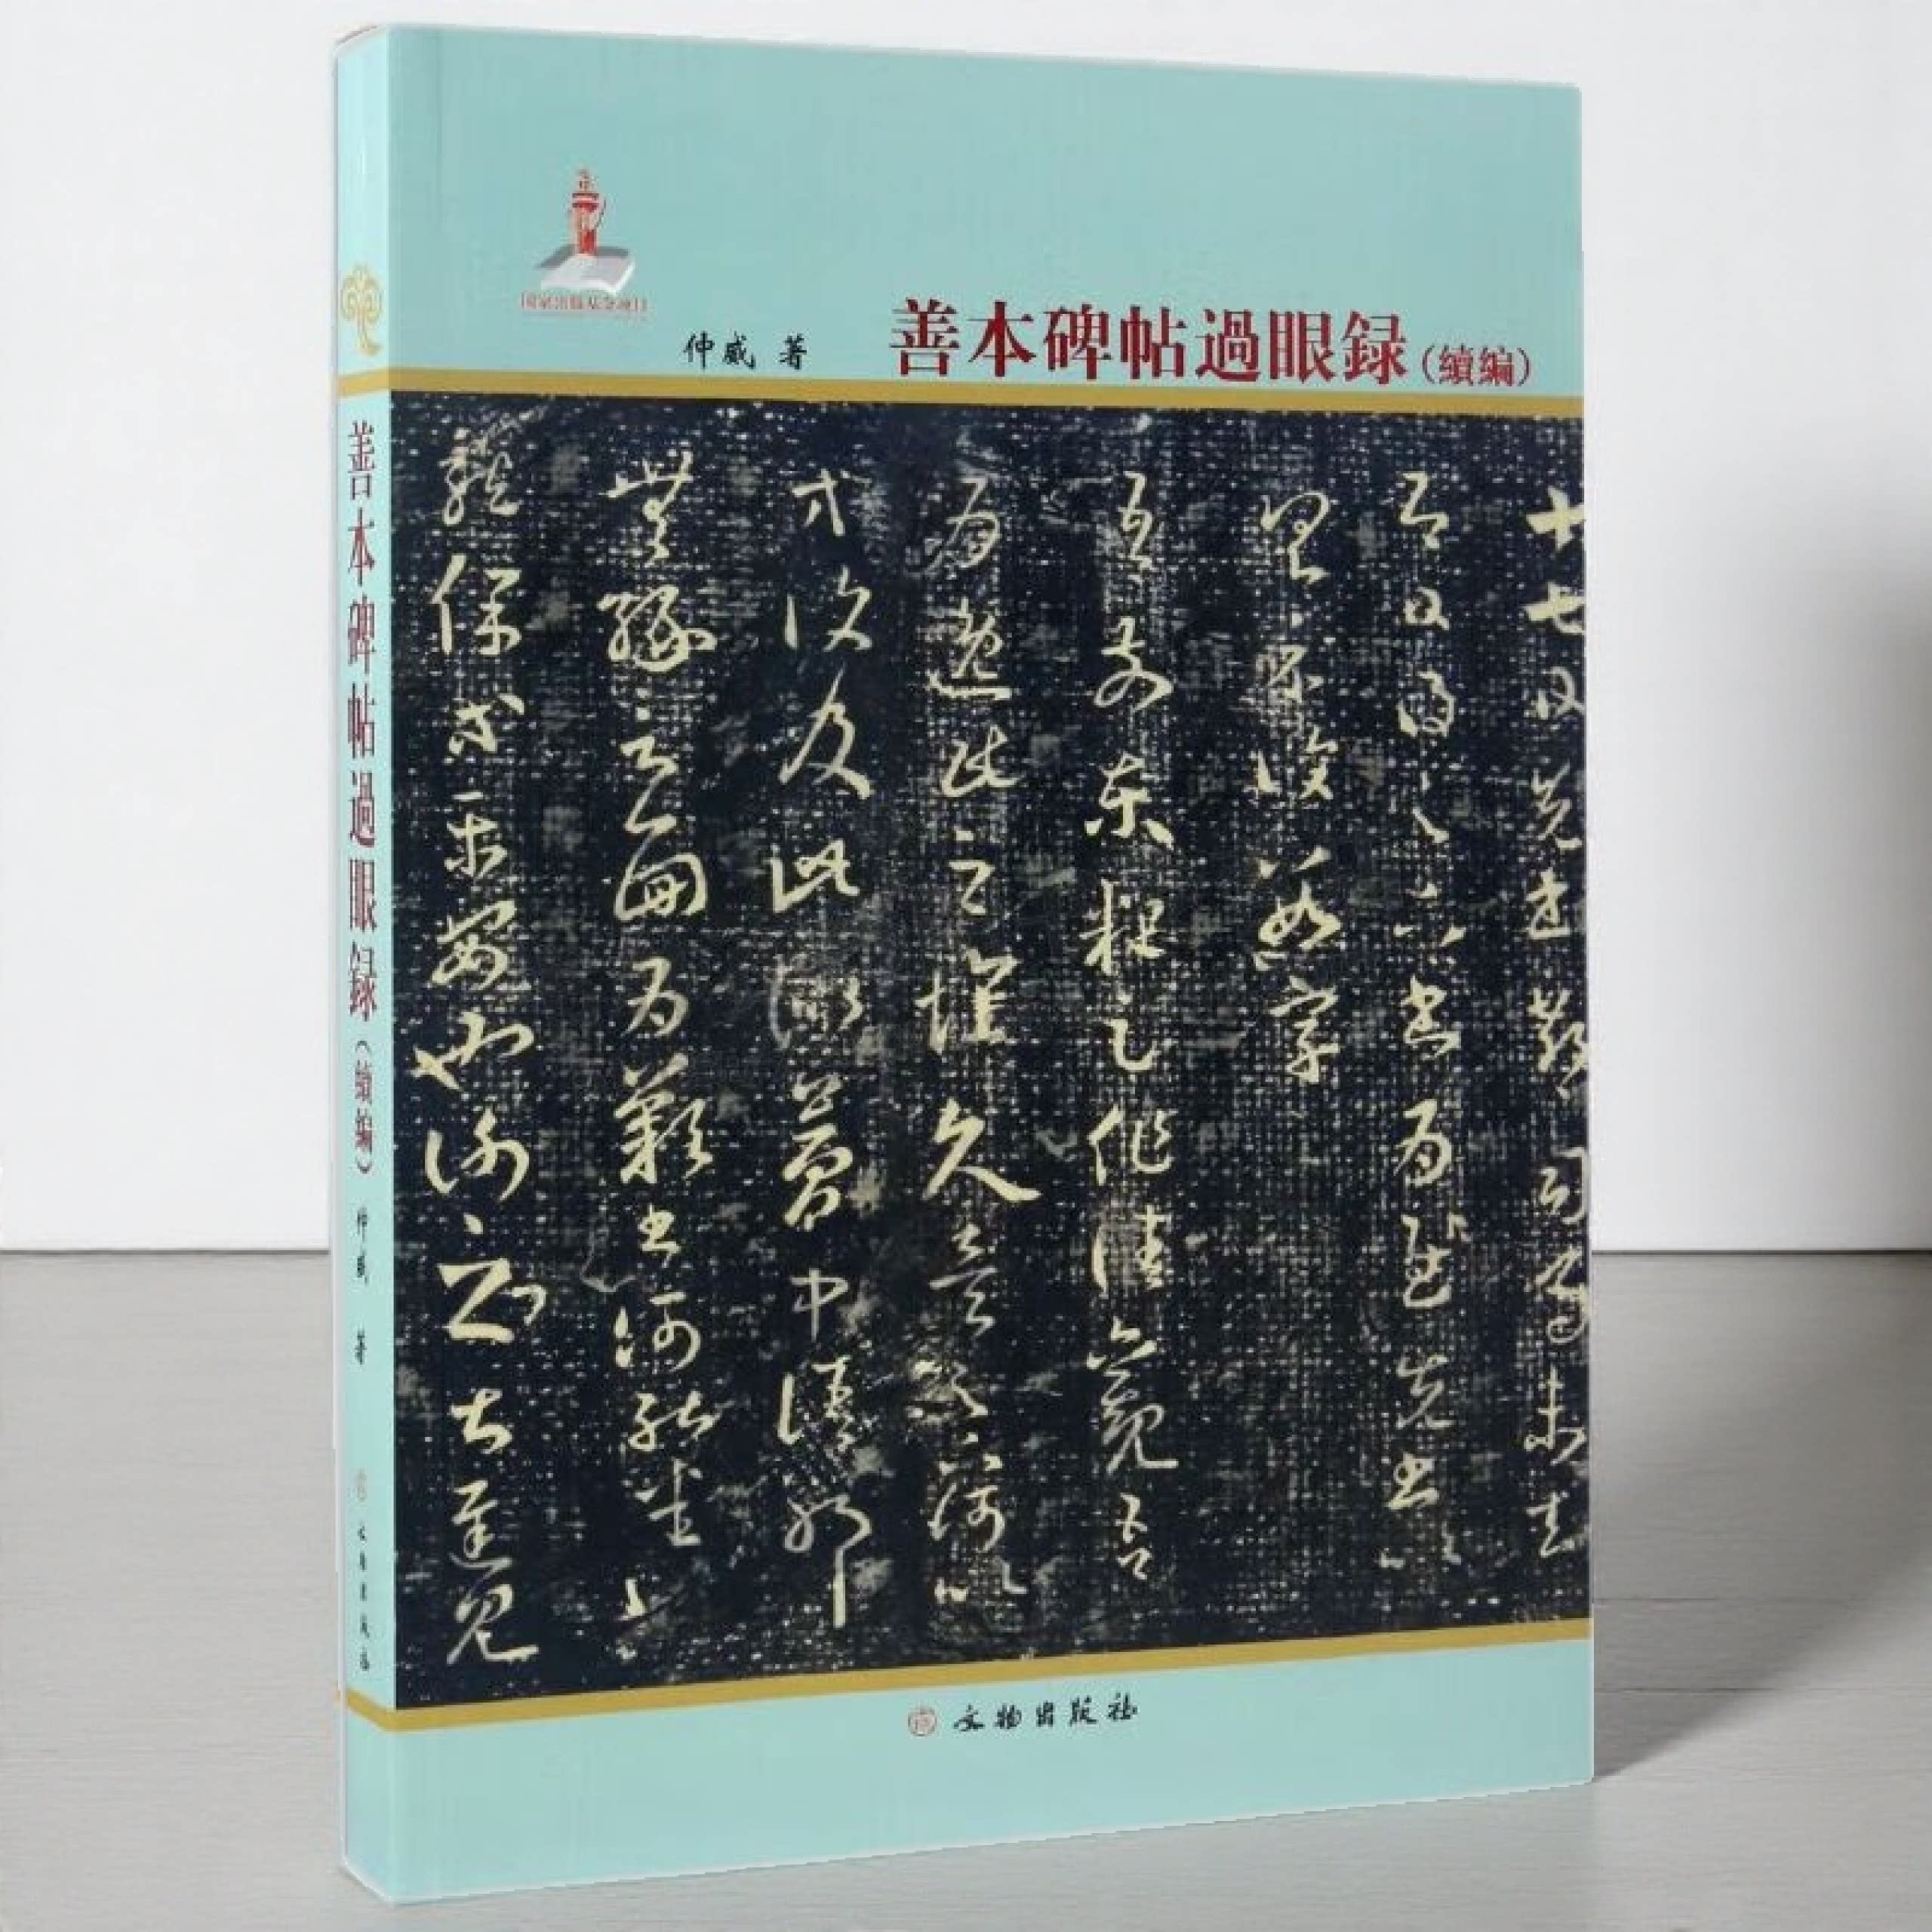 国家出版基金项目
仲威 著
善本碑帖過眼録（續編）
十七日先書郗司馬未去
即日得足下書為慰先書以
具示復數字
吾前東粗足作佳觀吾
為逸民之懷久矣足下何以
方復及此似夢中語耶
無緣言面為歎書何能悉
龍保等平安也謝之甚遲見
文物出版社
善本碑帖過眼録（續編） 仲威 著 文物出版社